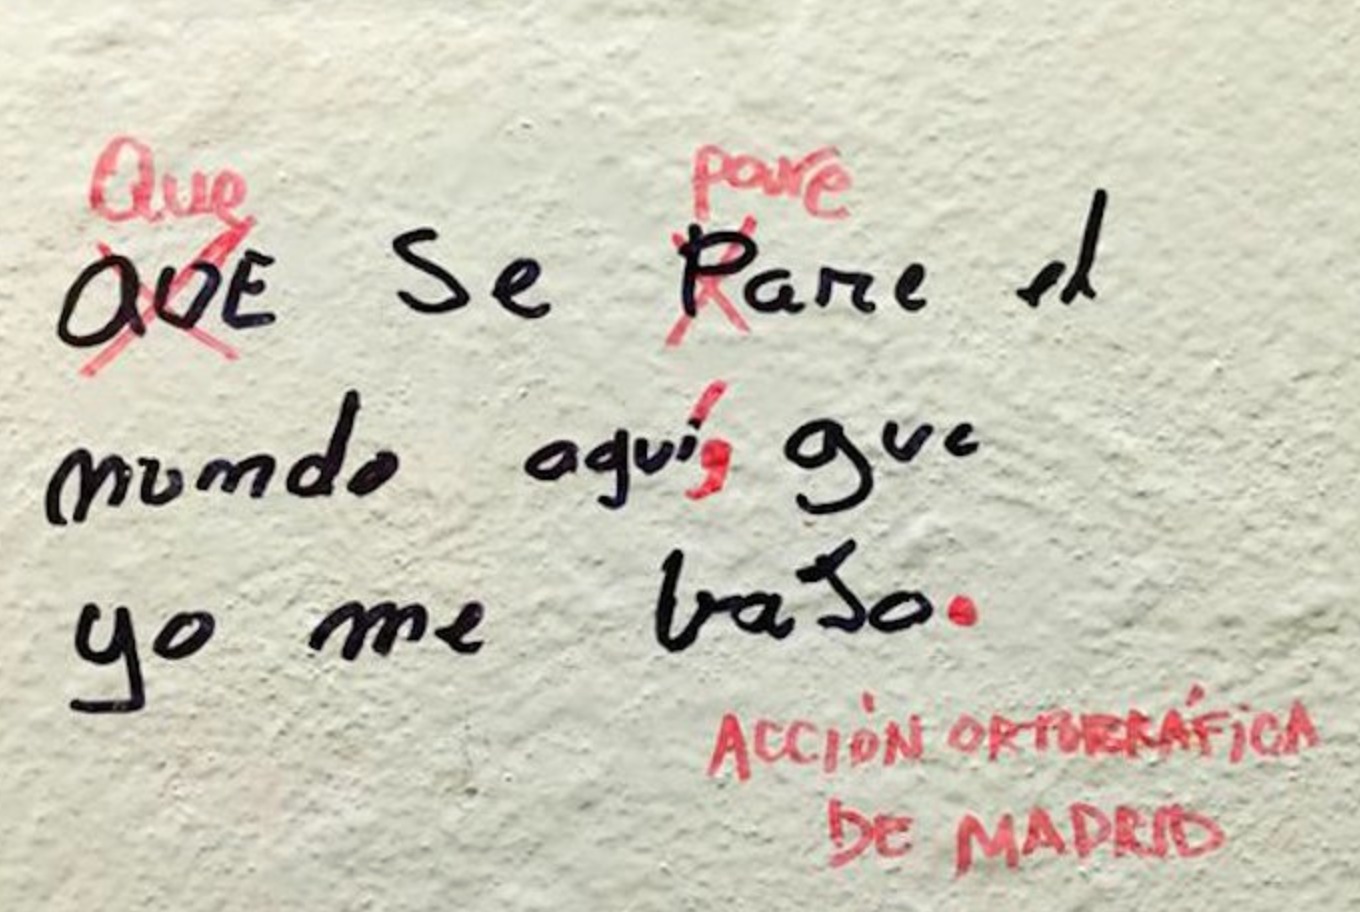 Que pare
QUE Se Pare el
mundo aquí, que
yo me bajo.
ACCIÓN ORTOGRÁFICA
DE MADRID